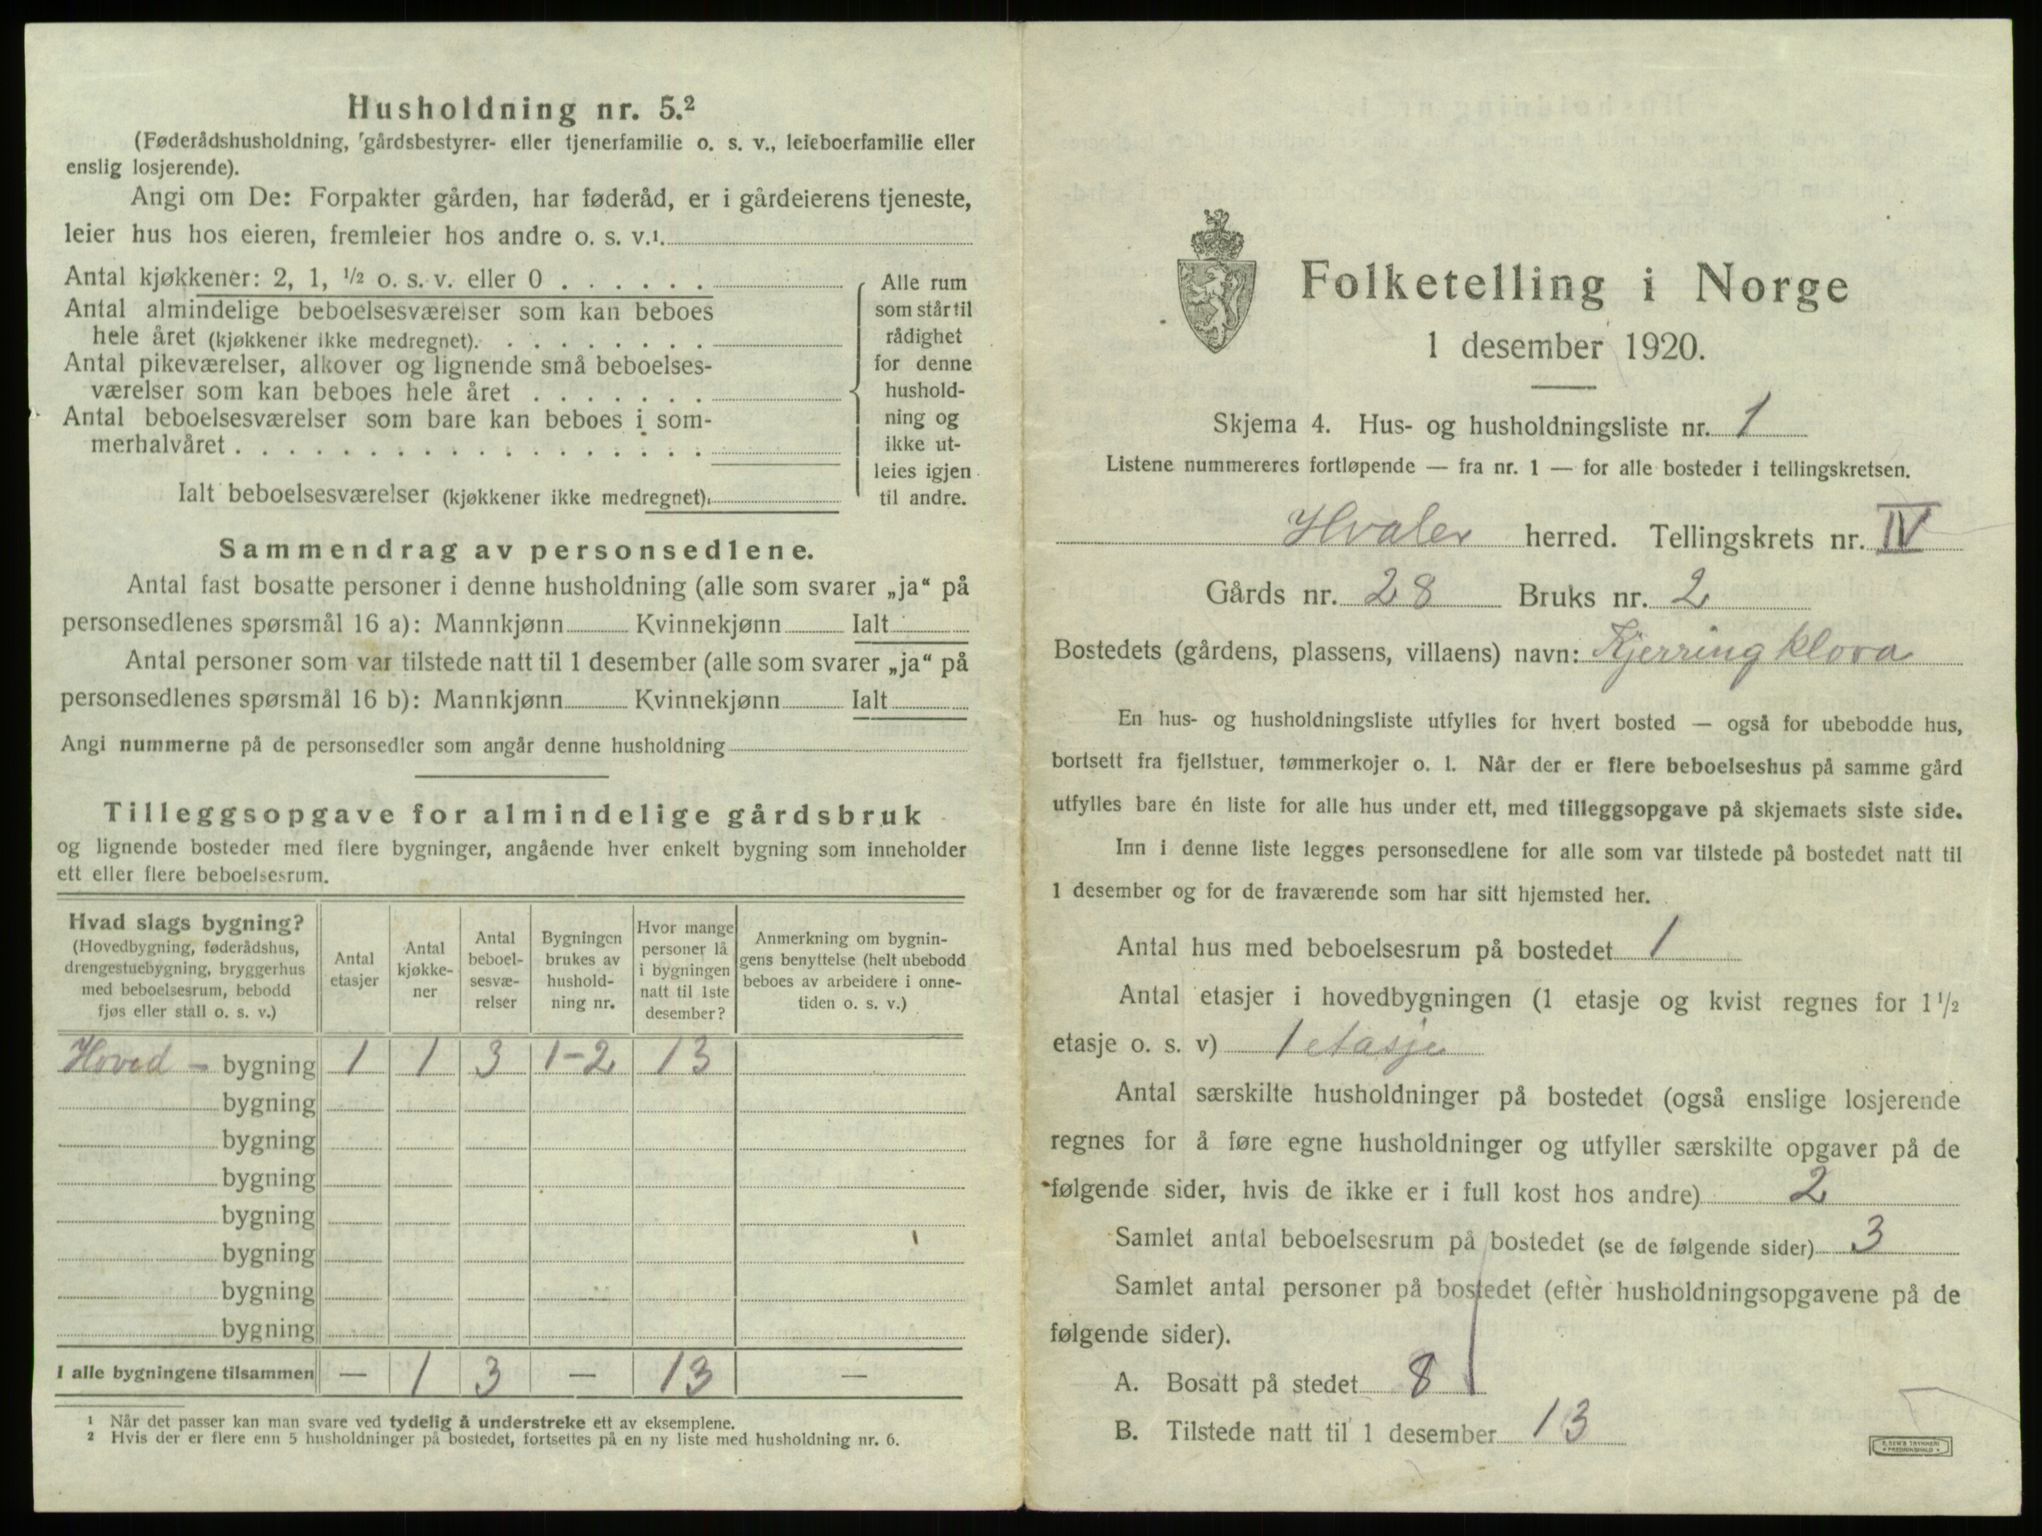 Husholdning nr. 5.²
(Føderådshusholdning, gårdsbestyrer- eller tjenerfamilie o. s. v., leieboerfamilie eller
enslig losjerende).
Angi om De: Forpakter gården, har føderåd, er i gårdeierens tjeneste,
leier hus hos eieren, fremleier hos andre o. s. v.¹.
Antal kjøkkener: 2, 1, ½ o. s. v. eller 0 . . . . . .
Antal almindelige beboelsesværelser som kan beboes
hele året (kjøkkener ikke medregnet). . . . . . . . .
Antal pikeværelser, alkover og lignende små beboelses-
værelser som kan beboes hele året . . . . . . .
Antal beboelsesværelser som bare kan beboes i som-
merhalvåret . . . . . . . . . . . . . . . . . .
Ialt beboelsesværelser (kjøkkener ikke medregnet).
Alle rum
som står til
rådighet
for denne
hushold-
ning og
ikke ut-
leies igjen
til andre.
Sammendrag av personsedlene.
Antal fast bosatte personer i denne husholdning (alle som svarer „ja“ på
personsedlenes spørsmål 16 a): Mannkjønn Kvinnekjønn Ialt
Antal personer som var tilstede natt til 1 desember (alle som svarer „ja“ på
personsedlenes spørsmål 16 b): Mannkjønn Kvinnekjønn Ialt
Angi nummerne på de personsedler som angår denne husholdning
Tilleggsopgave for almindelige gårdsbruk
og lignende bosteder med flere bygninger, angående hver enkelt bygning som inneholder
ett eller flere beboelsesrum.
Hvad slags bygning?
(Hovedbygning, føderådshus,
drengestuebygning, bryggerhus
med beboelsesrum, bebodd
fjøs eller stall o. s. v.)
Antal
etasjer
Antal
kjøkke-
ner
Antal
beboel-
sesvæ-
relser
Bygningen
brukes av
hushold-
ning nr.
Hvor mange
personer lå
i bygningen
natt til 1ste
desember?
Anmerkning om bygnin-
gens benyttelse (helt ubebodd
beboes av arbeidere i onne-
tiden o. s. v.)
Hoved - bygning 1 1 3 1-2 13
bygning
bygning
bygning
bygning
bygning
bygning
bygning
I alle bygningene tilsammen — 1 3 — 13 —
¹ Når det passer kan man svare ved tydelig å understreke ett av eksemplene.
² Hvis der er flere enn 5 husholdninger på bostedet, fortsettes på en ny liste med husholdning nr. 6.
Folketelling i Norge
1 desember 1920.
Skjema 4. Hus- og husholdningsliste nr. 1
Listene nummereres fortløpende — fra nr. 1 — for alle bosteder i tellingskretsen.
Hvaler herred. Tellingskrets nr. IV
Gårds nr. 28 Bruks nr. 2
Bostedets (gårdens, plassens, villaens) navn: Kjerringklova
En hus- og husholdningsliste utfylles for hvert bosted — også for ubebodde hus,
bortsett fra fjellstuer, tømmerkojer o. l. Når der er flere beboelseshus på samme gård
utfylles bare én liste for alle hus under ett, med tilleggsopgave på skjemaets siste side.
Inn i denne liste legges personsedlene for alle som var tilstede på bostedet natt til
1 desember og for de fraværende som har sitt hjemsted her.
Antal hus med beboelsesrum på bostedet 1
Antal etasjer i hovedbygningen (1 etasje og kvist regnes for 1 ½
etasje o. s. v) 1 etasje
Antal særskilte husholdninger på bostedet (også enslige losjerende
regnes for å føre egne husholdninger og utfyller særskilte opgaver på de
følgende sider, hvis de ikke er i full kost hos andre) 2
Samlet antal beboelsesrum på bostedet (se de følgende sider) 3
Samlet antal personer på bostedet (efter husholdningsopgavene på de
følgende sider).
A. Bosatt på stedet 8
B. Tilstede natt til 1 desember 13